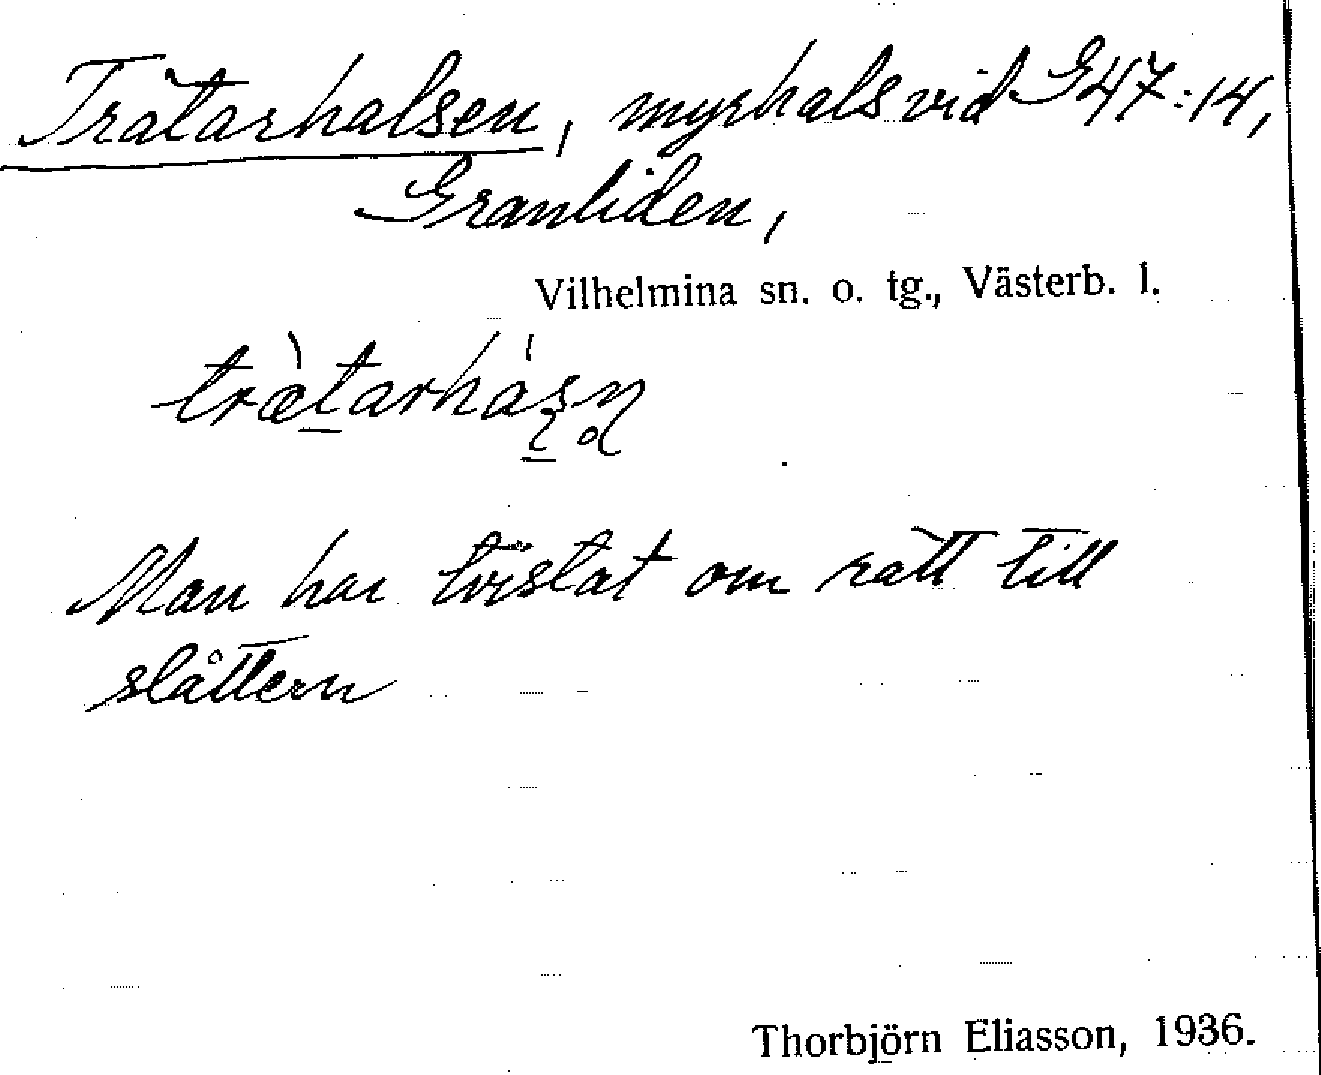 Trätarhalsen, myrhals vid G47:14,
Granliden,
Vilhelmina sn. o. tg., Västerb. l.
Man har tvistat om rätt till
slåttern
Thorbjörn Eliasson, 1936.